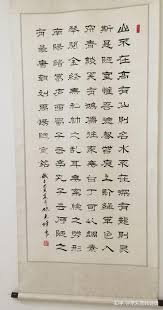 山不在高有仙則名水不在深有龍則靈
斯是陋室惟吾德馨苔痕上階綠草色入
簾青談笑有鴻儒往來無白丁可以調素
琴閱金經無絲竹之亂耳無案牘之勞形
南陽諸葛廬西蜀子雲亭孔子云何陋之
有 劉禹錫陋室銘